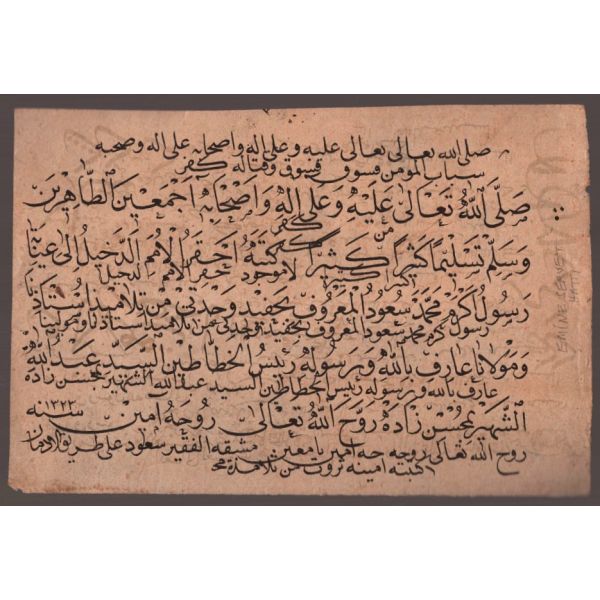 صلى الله تعالى تعالى عليه وعلى اله واصحابه على اله وصحبه
سباب المؤمن فسوق فسوق وقتاله كفر
صَلَّى اللهُ تَعَالَى عَلَيْهِ وَعَلَى الِهِ وَاَصْحَابِهِ اَجْمَعِينَ الطَّاهِرِينَ
كفر
وَسَلَّمَ تَسْلِيمًا كَثِيرًا كَثِيرًا كَتَبَهُ اَحْقَرُ الْاُمَمِ الدَّخِيلُ اِلَى عِنَايَةِ
لا موجود احقر الامم الدخيل
رَسُولِ اَكْرَمْ مُحَمَّدْ سُعُودْ الْمَعْرُوفُ بِحَفِيدِ وَحْدَتِي مِنْ تَلَامِيذِ اُسْتَاذِنَا
رسول اكرم محمد سعود المعروف بحفيد وحدتي من تلاميذ استاذنا ومولينا
وَمَوْلَانَا عَارِفْ بِاللهِ وَرَسُولِهِ رَئِيسُ الْخَطَّاطِينَ السَّيِّدْ عَبْدُ اللهِ
عارف بالله ورسوله رئيس الخطاطين السيد عبد الله الشهير بمحسن زاده
الشَّهِيرُ بِمُحْسِنْ زَادَهْ رَوَّحَ اللهُ تَعَالَى رُوحَهُ آمِينْ سنه ١٣٢٣
روح الله تعالى روحه حه امين يا معين مشقه الفقير سعود على طريق
كتبه امينه ثروت من تلامذة محمد
EMINE SERVET
HATTI